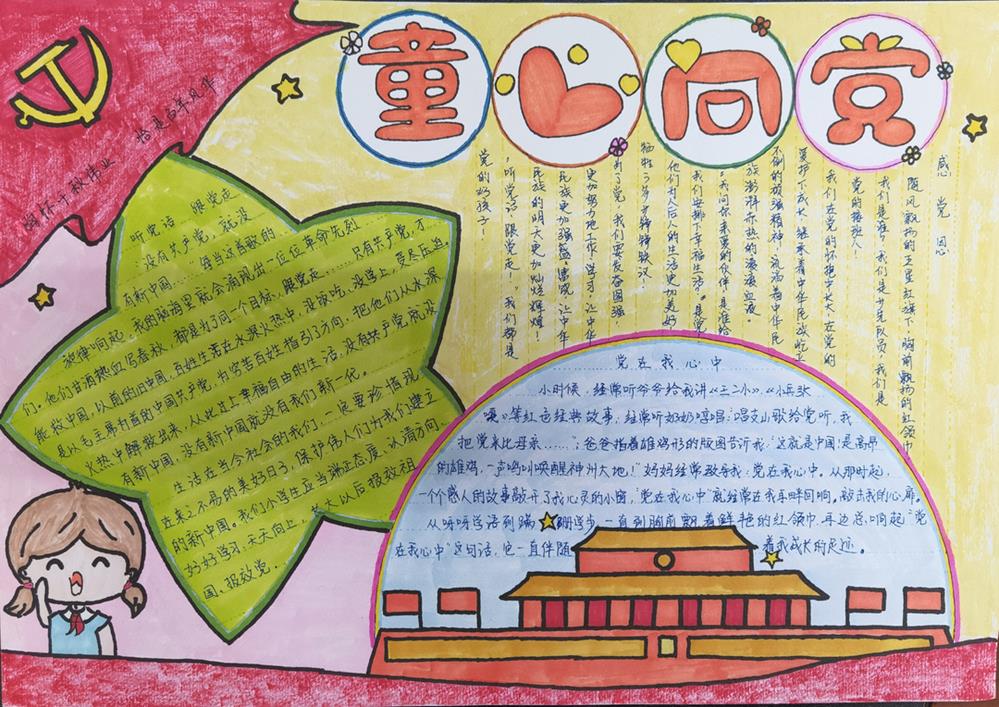 童心向党
胸怀千秋伟业 恰是百年风华
听党话 跟党走
没有共产党，就没
有新中国……每当这首歌的
旋律响起，我的脑海里就会涌现出一位位革命先烈
们。他们甘洒热血写春秋，都是为了同一个目标，跟党走……只有共产党，才
能救中国，以前的旧中国，百姓生活在水深火热中，没饭吃，没学上，受尽压迫。
是以毛主席为首的中国共产党，为穷苦百姓指引了方向，把他们从水深
火热中解救出来，从此过上幸福自由的生活，没有共产党就没
有新中国，没有新中国就没有我们新一代。
生活在当今社会的我们，一定要珍惜现
在来之不易的美好日子，保护伟人们为我们建立
的新中国。我们小学生应当端正态度、认清方向、
好好学习，天天向上，长大以后报效祖
国，报效党。
感党恩
随风飘扬的五星红旗下，胸前飘扬的红领巾
我们是谁？我们是少先队员，我们是
党的接班人！
我们在党的怀抱中长大，在党的
爱护下成长，继承着中华民族屹立
不倒的顽强精神，流淌着中华民
族澎湃亦热的滚滚血液。
我问你亲爱的伙伴，是谁给
我们安排下幸福生活？是党！
他们为人后人的生活更加美好
牺牲了多少铮铮铁汉。
为了党，我们要发奋图强！
更加努力地工作、学习，让中华
民族更加强盛，让中华
民族的明天更加灿烂辉煌！
"听党话，跟党走！"我们都是
党的好孩子！
党在我心中
小时候，经常听爷爷给我讲《王二小》、《小兵张
嘎》等红色经典故事，经常听奶奶哼唱："唱支山歌给党听，我
把党来比母亲……"；爸爸指着雄鸡形的版图告诉我："这就是中国！是高昂
的雄鸡，一声鸣叫唤醒神州大地！"妈妈经常教导我：党在我心中。从那时起，
一个个感人的故事敲开了我心灵的小窗，"党在我心中"就经常在我耳畔回响。敲击我的心扉。
从呀呀学语到蹒跚学步，一直到胸前飘着鲜艳的红领巾，耳边总响起"党
在我心中"这句话，它一直伴随着我成长的足迹。